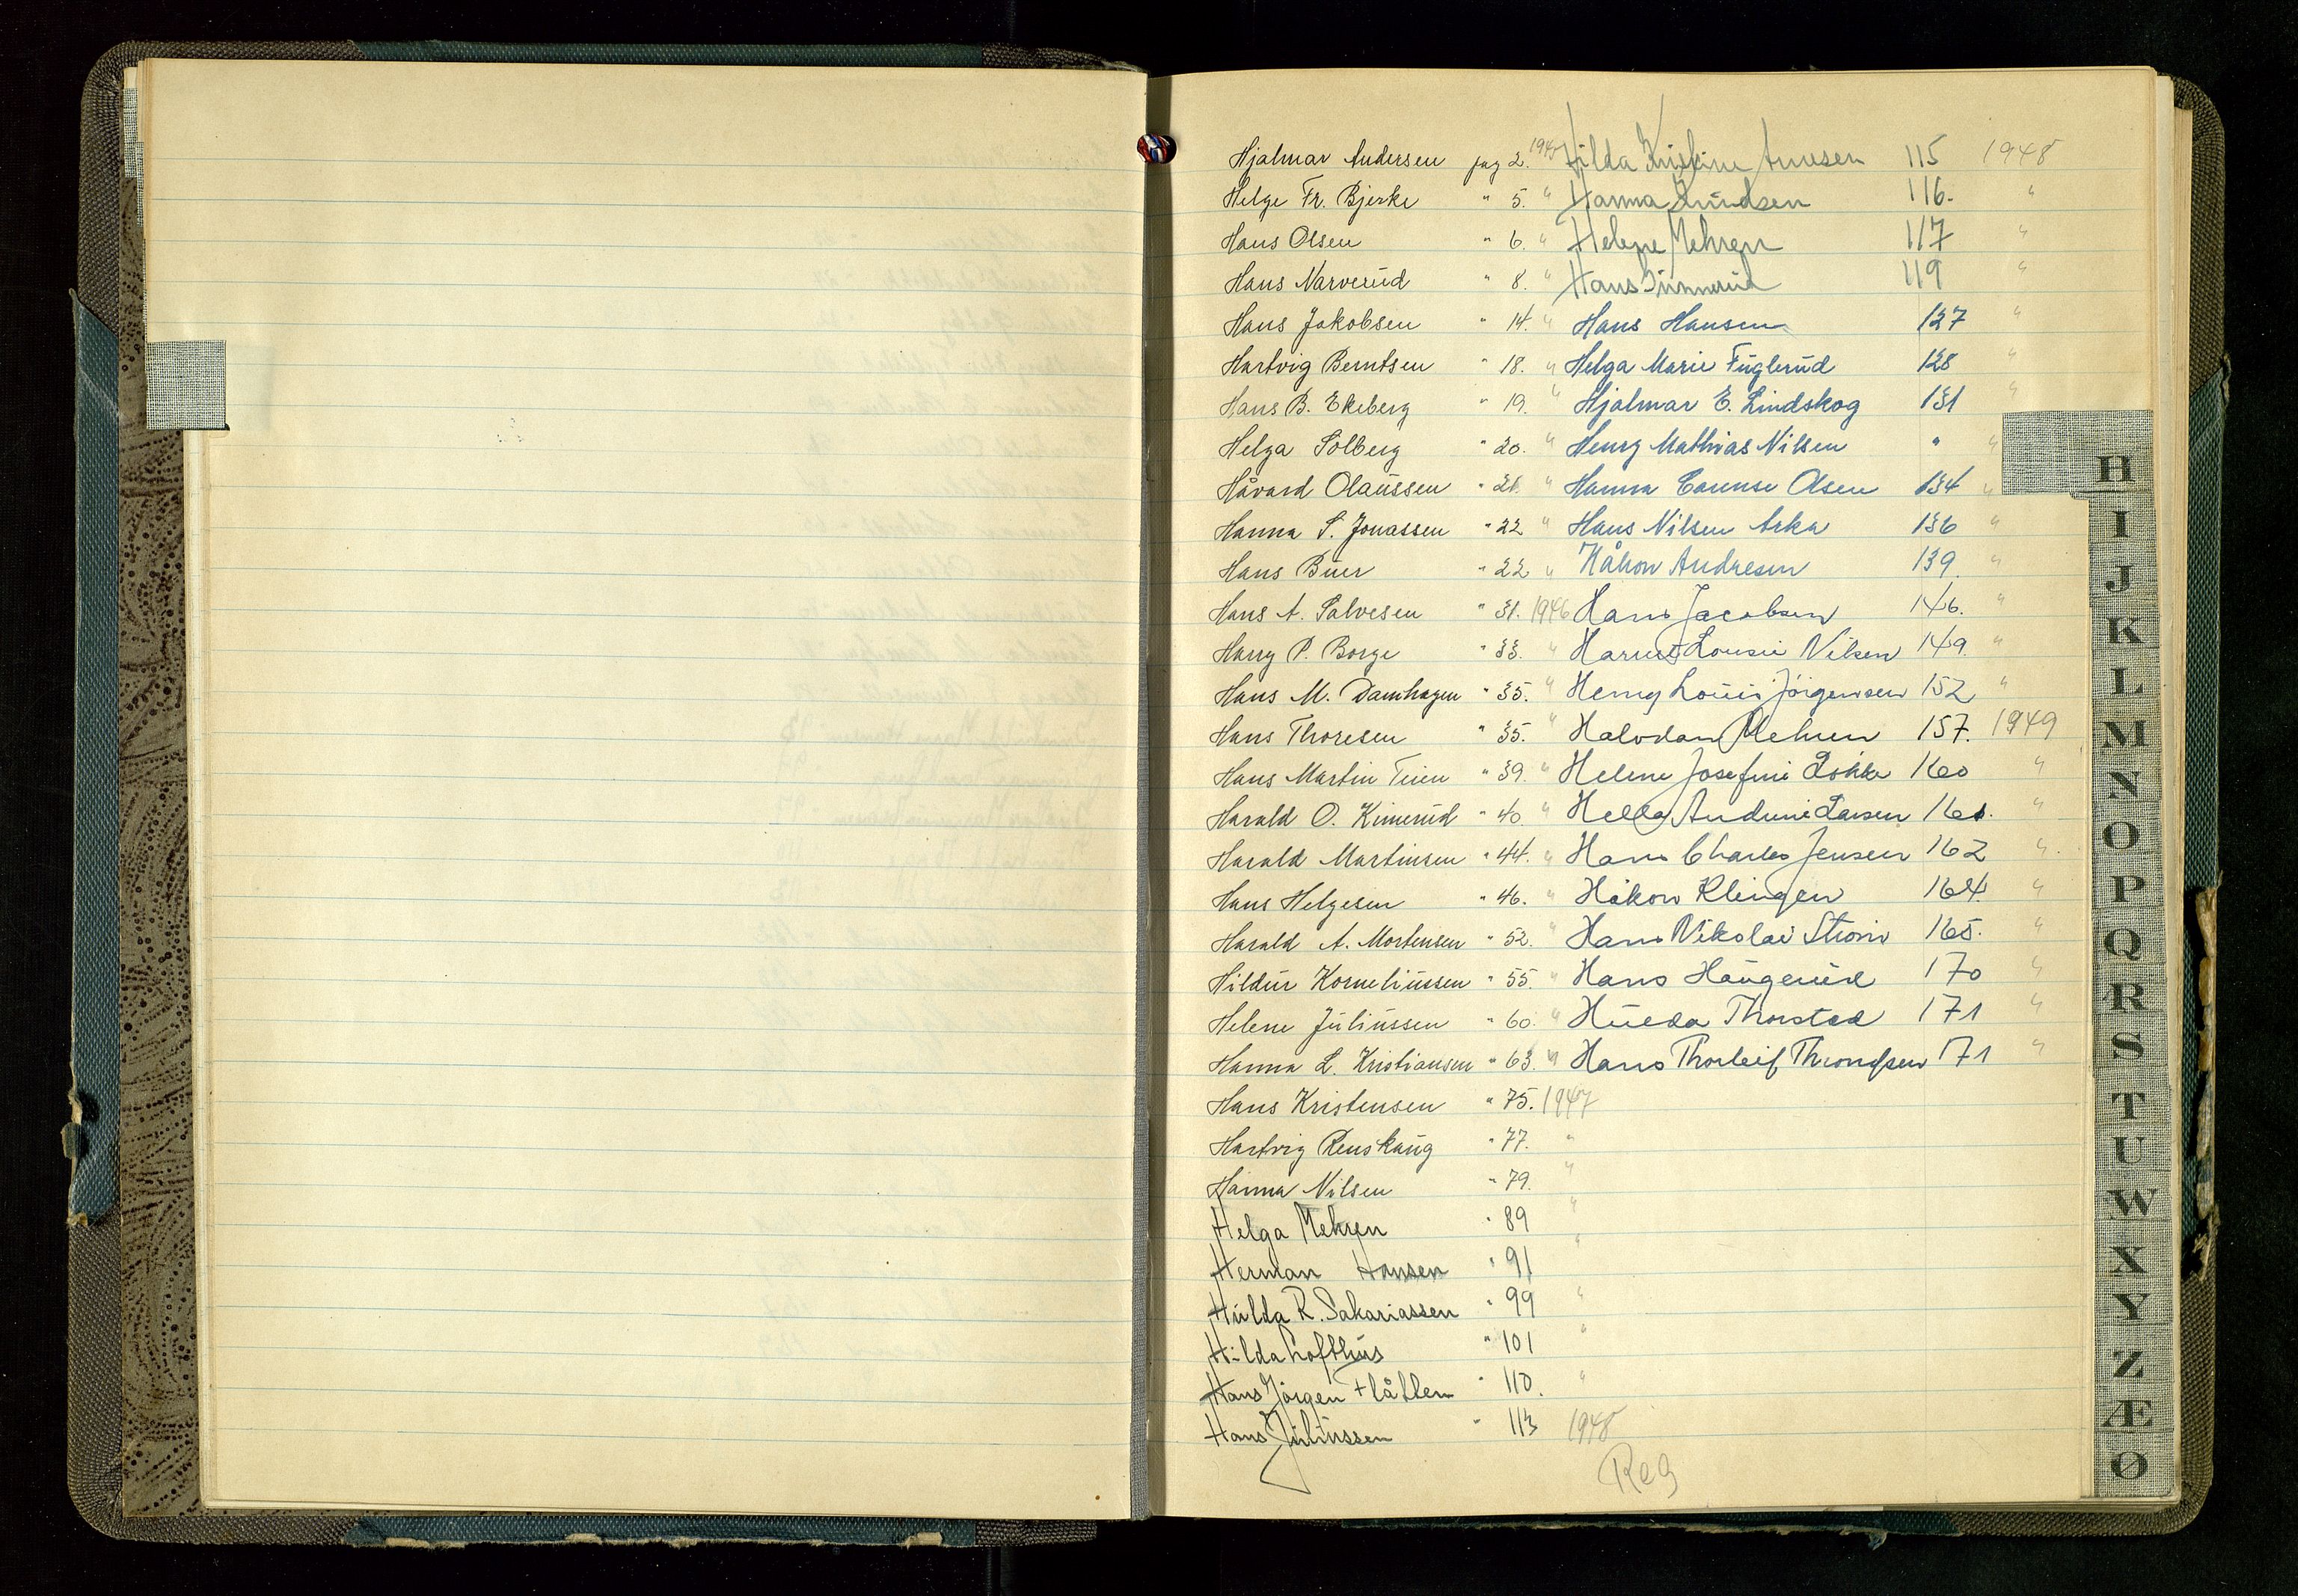 Hjalmar Andersen pag 2. 1945 Hilda Kristine Arnesen 115 1948
Helge Fr. Bjerke " 5. " Hanna Knudsen 116. "
Hans Olsen " 6. " Helene Mehren 117 "
Hans Narverud " 8. " Hans Tinnerud 119 "
Hans Jakobsen " 14. " Hans Hansen 127 "
Hartvig Berntsen " 18. " Helga Marie Fuglerud 128 "
Hans B. Ekeberg " 19. " Hjalmar E. Lindskog 131 "
Helga Solberg " 20. " Henry Mathias Nilsen " "
Håvard Olaussen " 21. " Hanna Carense Olsen 134 "
Hanna S. Jonassen " 22 " Hans Nilsen Arka 136 "
Hans Buer " 22 " Håkon Andresen 139 "
Hans A. Salvesen " 31. 1946 Hans Jacobsen 146. "
Harry P. Borge " 33. " Harriet Lousie Nilsen 149. "
Hans M. Damhagen " 35. " Henry Louis Jörgensen 152 "
Hans Thoresen " 35. " Halvdan Mehren 157. 1949
Hans Martin Teien " 39. " Helene Josefine Lökke 160 "
Harald O. Kimerud " 40. " " Larsen 161. "
Harald Martinsen " 44. " Hans Charles Jensen 162 "
Hans Helgesen " 46. " Håkon Klingen 164. "
Harald A. Mortensen " 52. " Hans Nikolai Strøm 165. "
Hildur Korneliussen " 55. " Hans Haugerud 170 "
Helene Juliussen " 60. " Hulda Thorstad 171 "
Hanna L. Kristiansen " 63. " Hans Thorleif Throndsen 171 "
Hans Kristensen " 75. 1947
Hartvig Renskaug " 77. "
Hanna Nilsen " 79. "
Helga Mehren " 89 "
Herman Hansen " 91 "
Hulda R. Sakariassen " 99 "
Hilda Lofthus " 101 "
Hans Jörgen Flåtten " 110. "
Hans Juliussen " 113 1948
Reg
H
I
J
K
L
M
N
O
P
Q
R
S
T
U
W
X
Y
Z
Æ
Ø